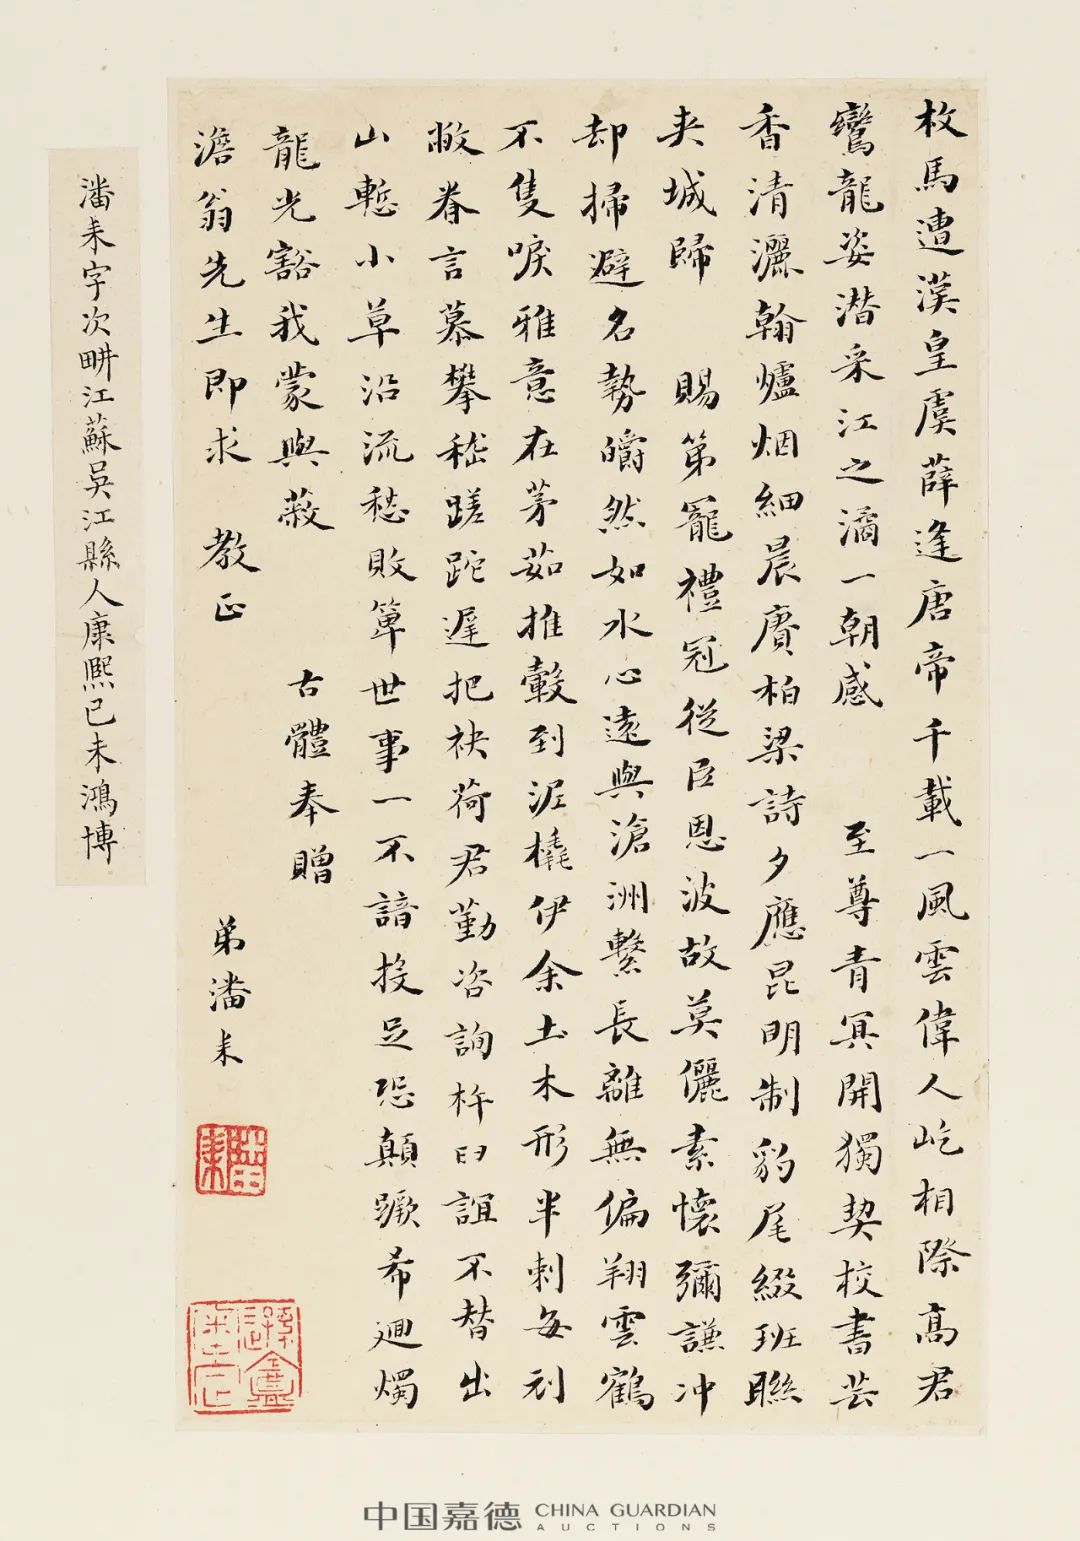 枚馬遭漢皇虞薛逢唐帝千載一風雲偉人屹相際高君
鸞龍姿潛采江之濡一朝感 至尊青冥開獨契校書芸
香清灑翰爐烟細晨賡柏梁詩夕應昆明制豹尾綴班聯
夾城歸 賜第寵禮冠從臣恩波故莫儷素懷彌謙冲
却掃避名勢皭然如水心遠與滄洲繫長離無偏翔雲鶴
不隻唳雅意在茅茹推轂到泥橇伊余土木形半刺每刓
敝眷言慕攀嵇蹉跎遲把袂荷君勤咨詢杵臼誼不替出
山慙小草沿流愁敗箄世事一不諳投足恐顛蹶希迴燭
龍光豁我蒙與蔽
古體奉贈
澹翁先生即求 教正
弟潘耒
潘耒字次畊江蘇吳江縣人康熙己未鴻博
中国嘉德 CHINA GUARDIAN
AUCTIONS